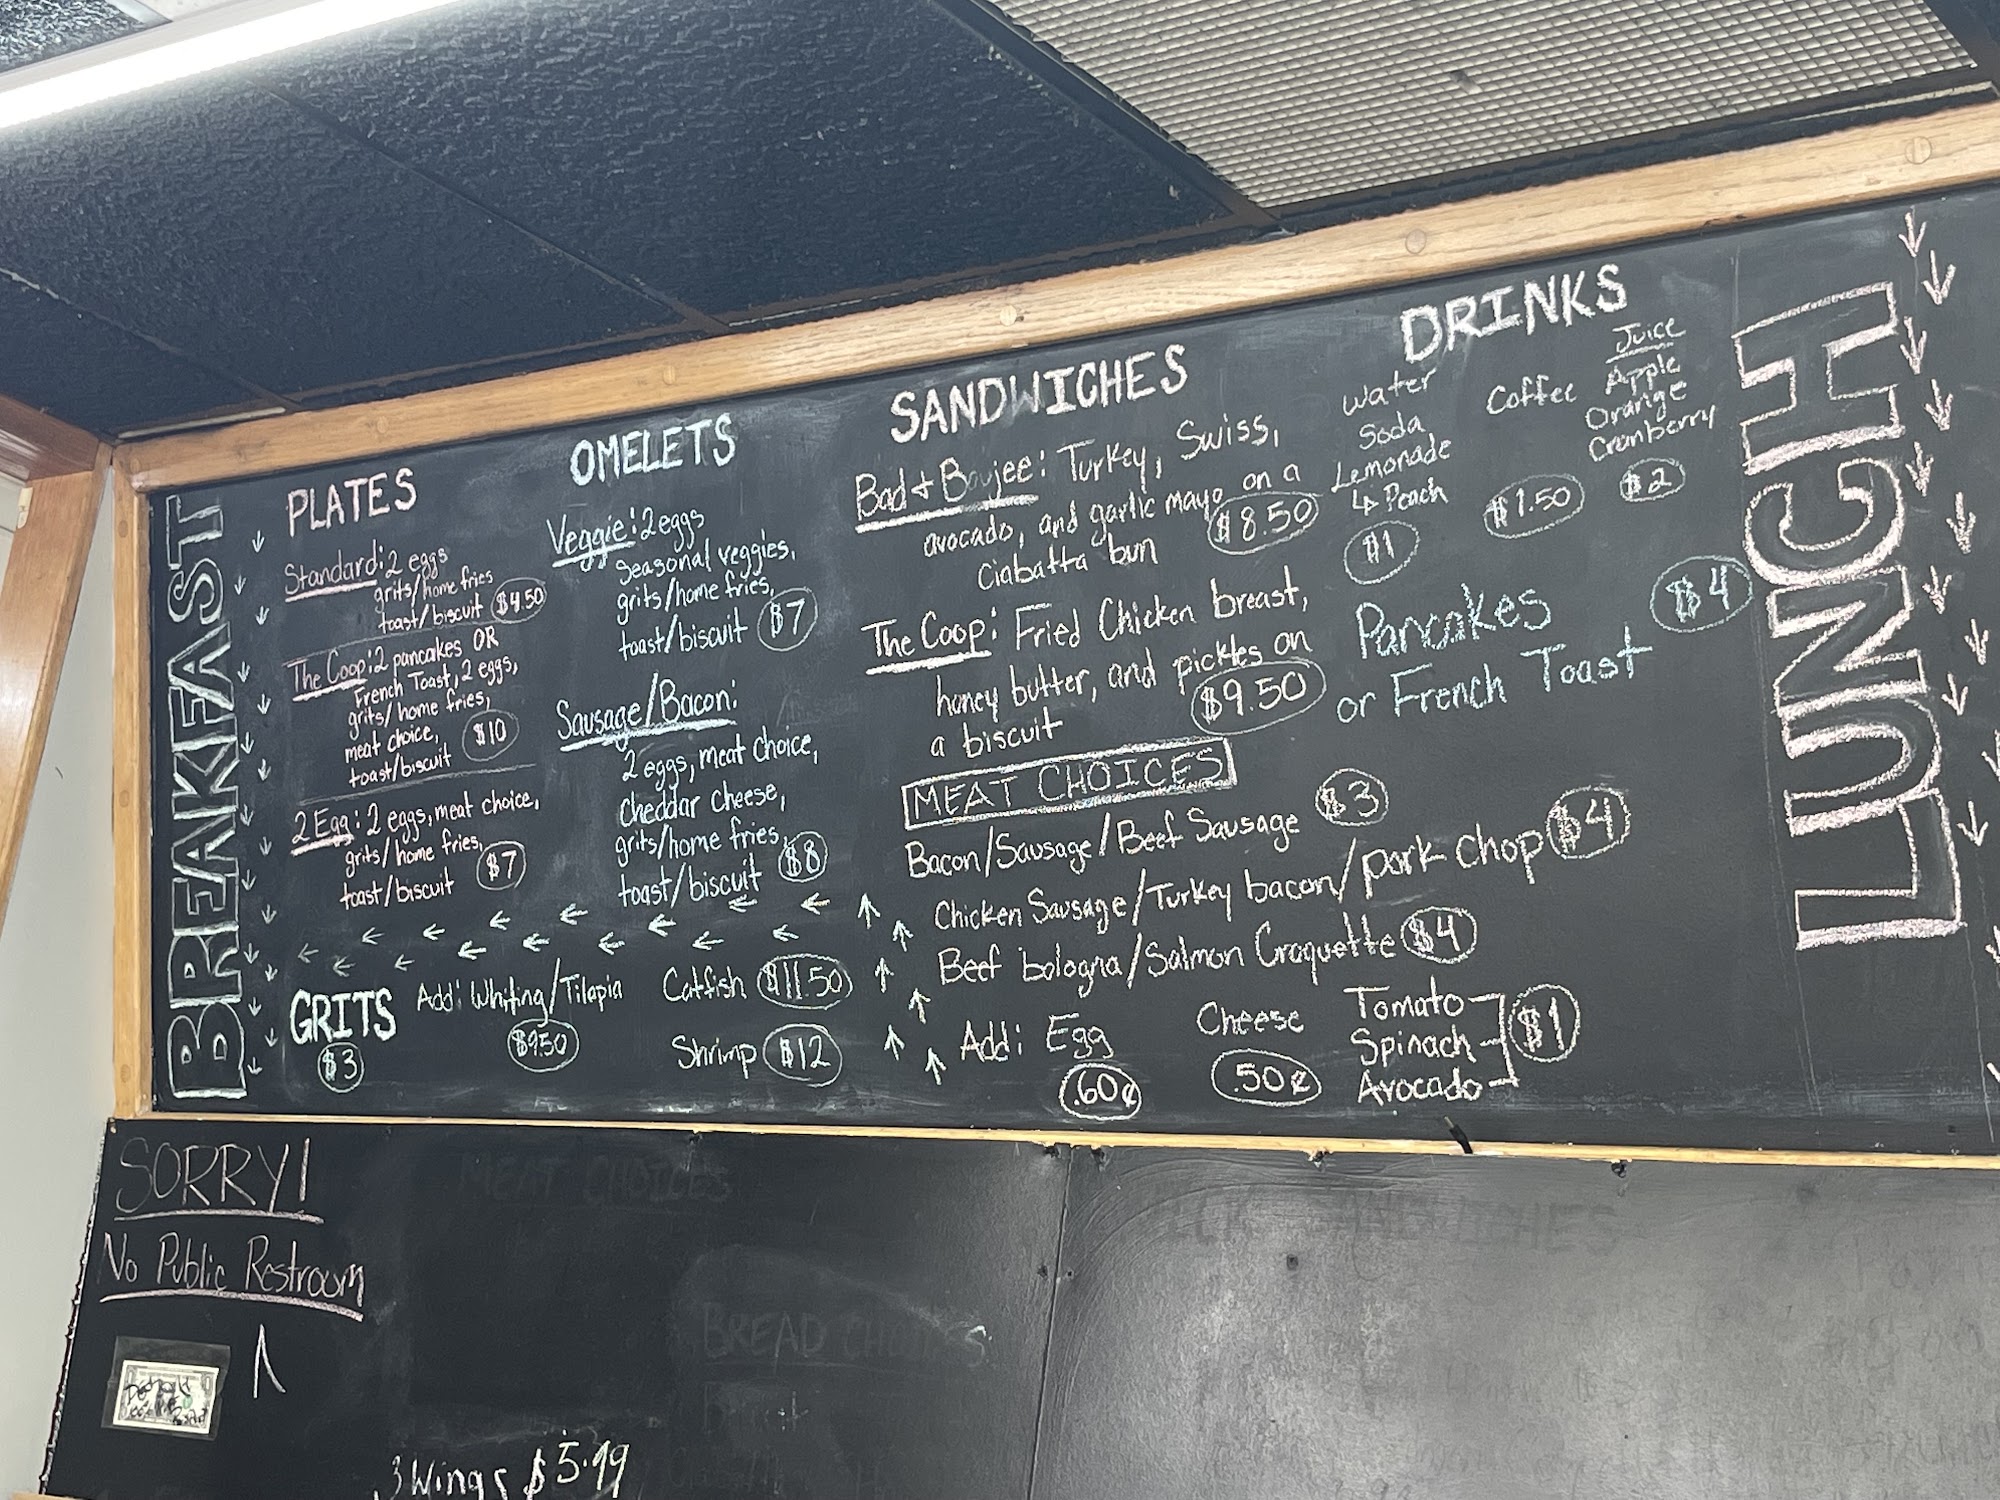 BREAKFAST
PLATES
Standard: 2 eggs
grits/home fries
toast/biscuit $4.50
The Coop: 2 pancakes OR
French Toast, 2 eggs,
grits/home fries,
meat choice,
toast/biscuit $10
2 Egg: 2 eggs, meat choice,
grits/home fries,
toast/biscuit $7
OMELETS
Veggie: 2 eggs
Seasonal veggies,
grits/home fries,
toast/biscuit $7
Sausage/Bacon:
2 eggs, meat choice,
cheddar cheese,
grits/home fries,
toast/biscuit $8
GRITS
$3
Add: Whiting/Tilapia
$9.50
Catfish $11.50
Shrimp $12
SANDWICHES
Bad + Boujee: Turkey, Swiss,
avocado, and garlic mayo on a
Ciabatta bun $8.50
The Coop: Fried Chicken breast,
honey butter, and pickles on
a biscuit $9.50
MEAT CHOICES
Bacon/Sausage/Beef Sausage $3
Chicken Sausage/Turkey bacon/pork chop $4
Beef bologna/Salmon Croquette $4
Add: Egg
.60¢
Cheese
.50¢
Tomato
Spinach
Avocado
$1
DRINKS
Water
Soda
Lemonade
↳ Peach
$1
Coffee
$1.50
Juice
Apple
Orange
Cranberry
$2
Pancakes
or French Toast
$4
LUNCH
SORRY!
No Public Restroom
MEAT CHOICES
BREAD CHOICES
3 Wings $5.99